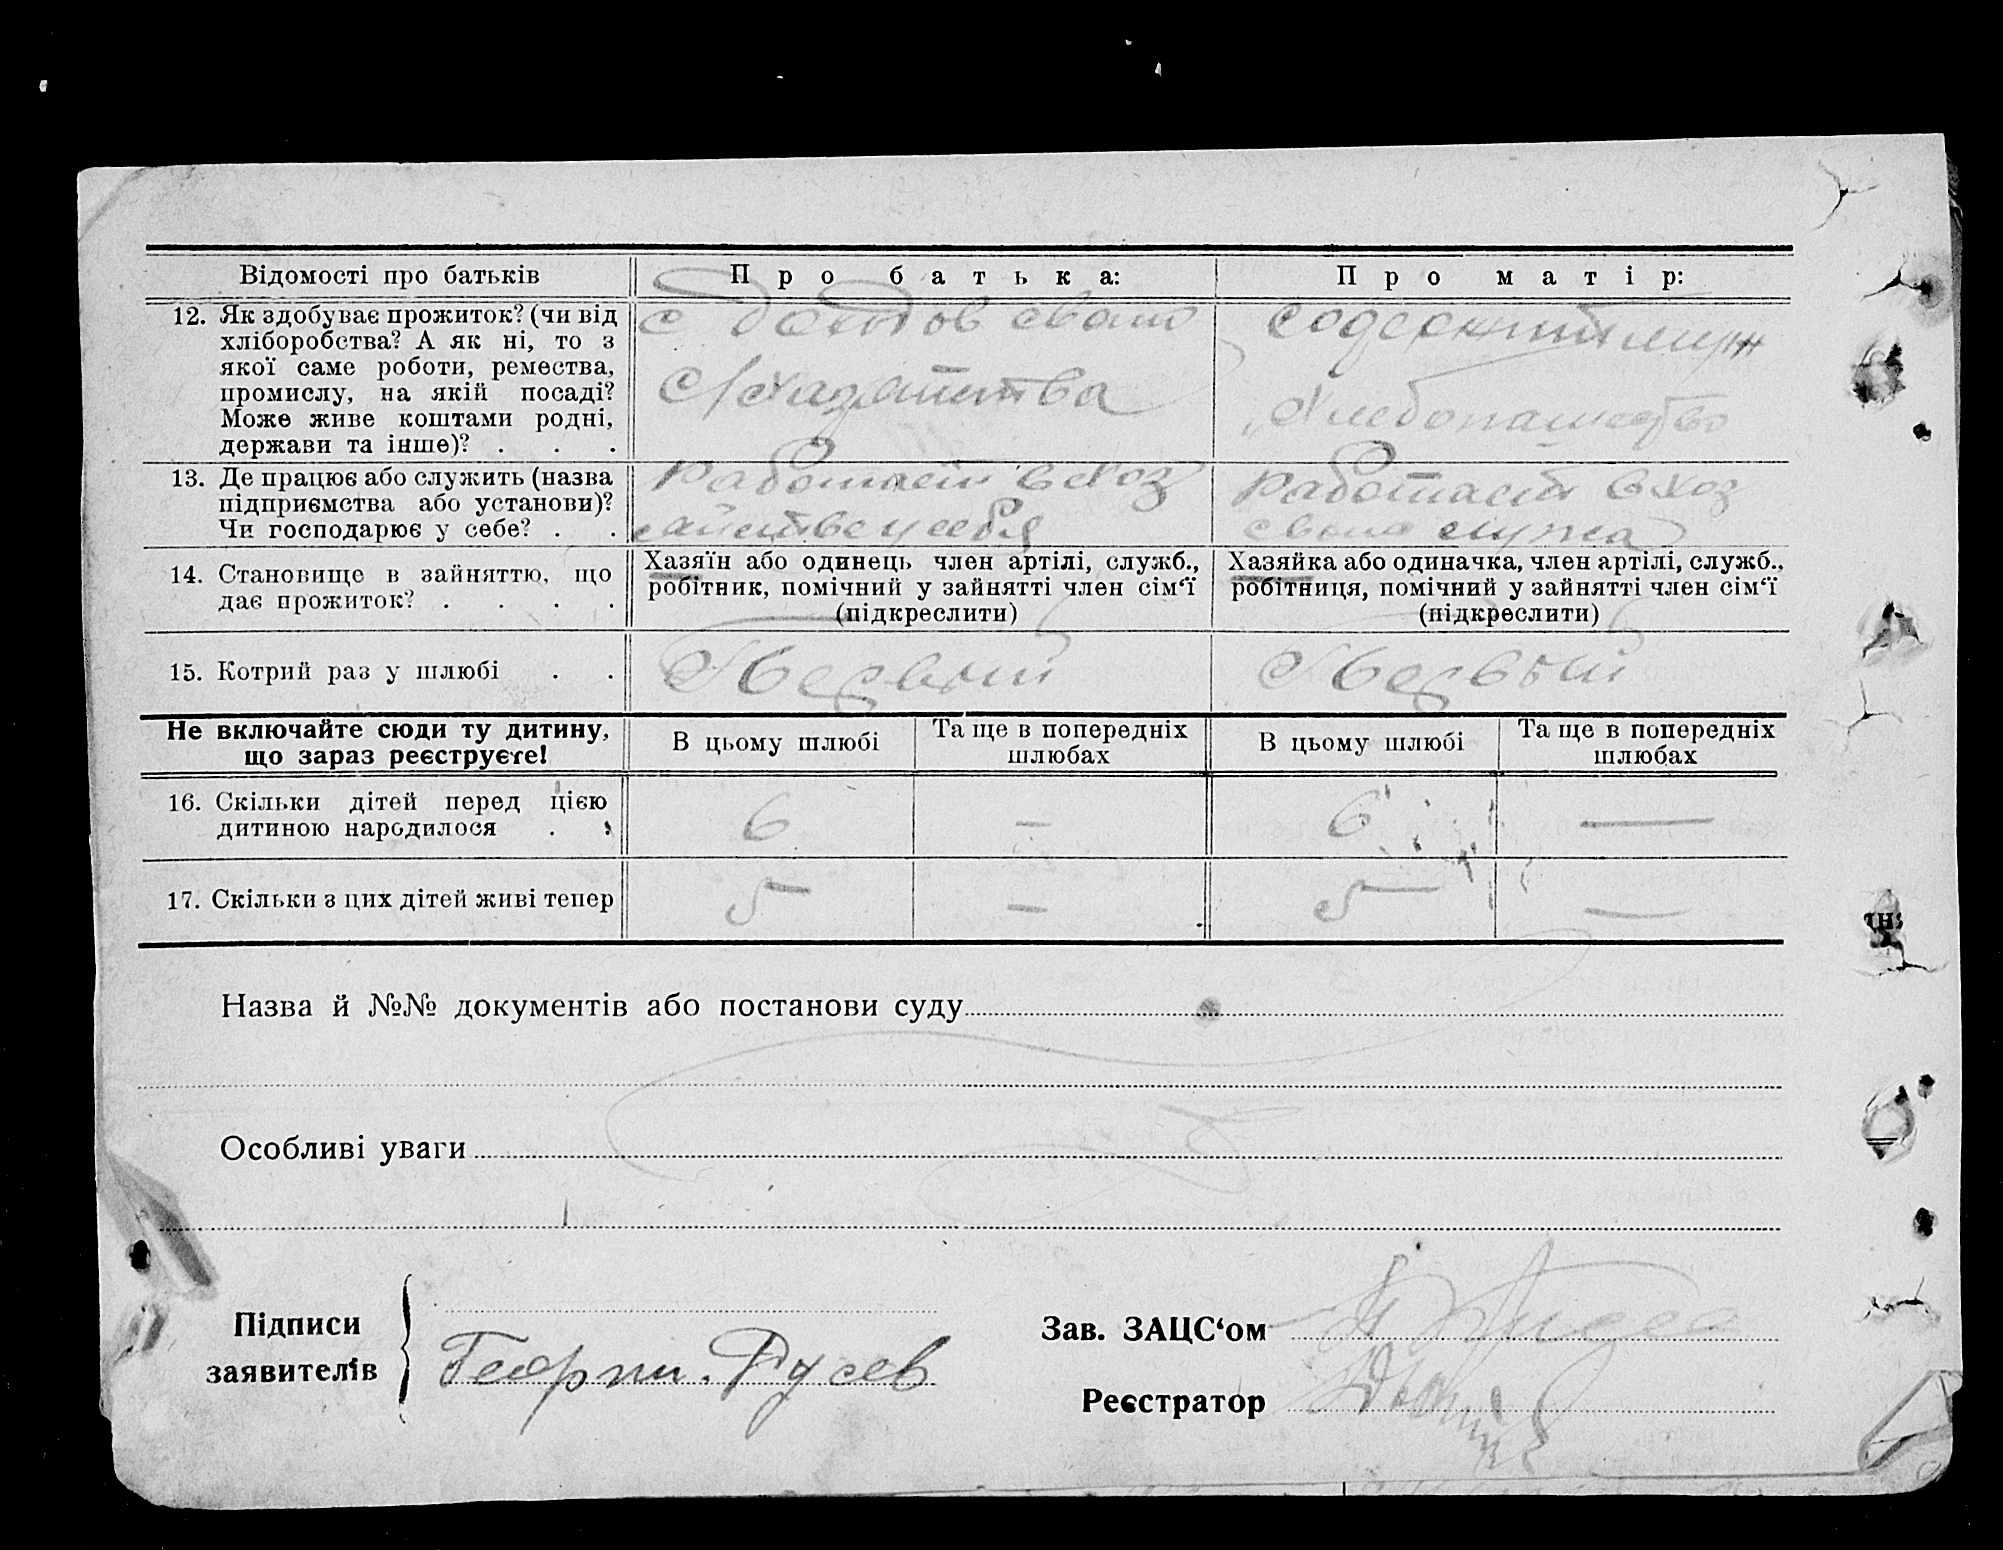 Відомості про батьків
Про батька:
Про матір:
12. Як здобуває прожиток? (чи від
хліборобства? А як ні, то з
якої саме роботи, ремества,
промислу, на якій посаді?
Може живе коштами родні,
держави та інше)? . . .
с доходов свого
с/хазяйства
содержит муж
„Хлебопашество
13. Де працює або служить (назва
підприємства або установи)?
Чи господарює у себе? . .
работает в хоз
яйстве у себя
работает в хоз
свого мужа
14. Становище в зайняттю, що
дає прожиток? . . . .
Хазяїн або одинець член артілі, служб.,
робітник, помічний у зайнятті член сім‘ї
(підкреслити)
Хазяйка або одиначка, член артілі, служб.,
робітниця, помічний у зайнятті член сім‘ї
(підкреслити)
15. Котрий раз у шлюбі . .
Первый
Первый
Не включайте сюди ту дитину,
що зараз реєструєте!
В цьому шлюбі
Та ще в попередніх
шлюбах
В цьому шлюбі
Та ще в попередніх
шлюбах
16. Скільки дітей перед цією
дитиною народилося . .
6
—
6
—
17. Скільки з цих дітей живі тепер
5
—
5
—
Назва й №№ документів або постанови суду
Особливі уваги
Підписи
заявителів
Георги. Русев
Зав. ЗАЦС‘ом
Реєстратор